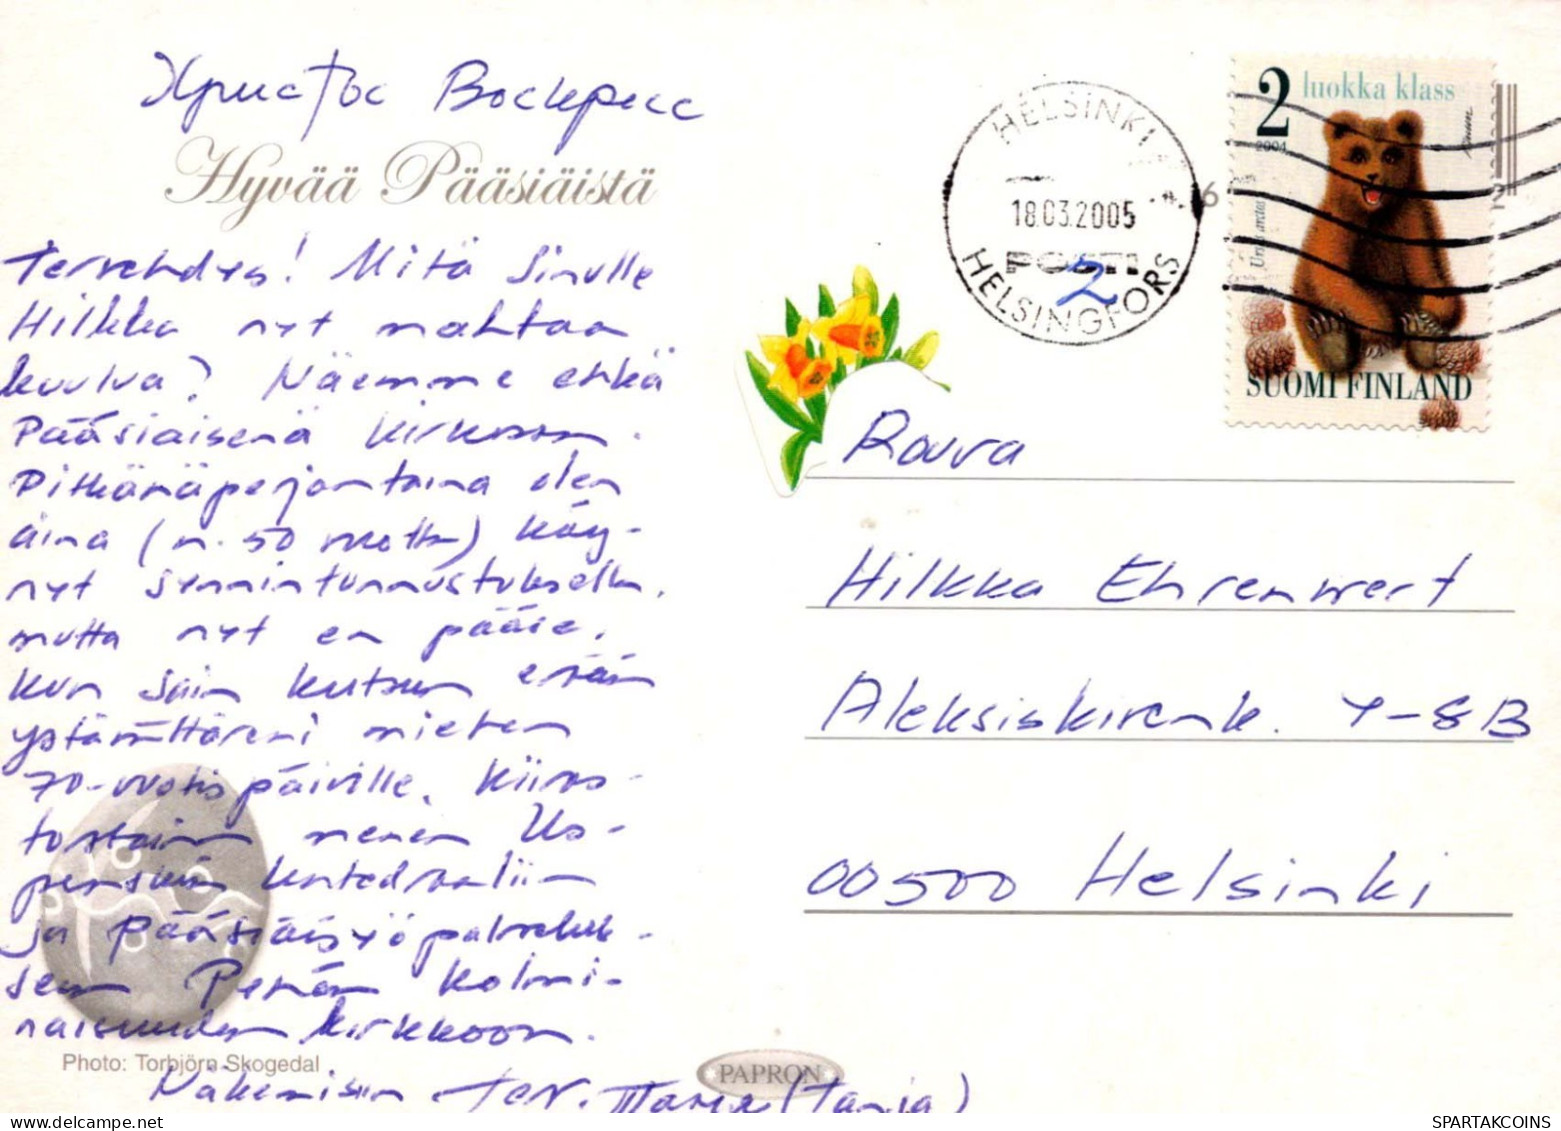 Христос Воскресе
Hyvää Pääsiäistä
Tervehdys! Mitä Sinulle
Hilkka nyt mahtaa
kuulua? Näemme ehkä
Pääsiäisenä kirkossa.
Pitkänäperjantaina olen
aina (n. 50 vuotta) käy-
nyt synnintunnustuksella,
mutta nyt en pääse,
kun sain kutsun erään
ystävättäreni miehen
70-vuotispäiville. Kiiras-
torstaina menen Us-
penskin katedraaliin
ja Pääsiäisyöpalveluk-
seen Pyhän Kolmi-
naisuuden kirkkoon.
Photo: Torbjörn Skogedal
Näkemisiin Terv. (Tanja)
PAPRON
HELSINKI
18.03.2005
POSTI
2
HELSINGFORS
2 luokka klass
2004
Ursus arctos
SUOMI FINLAND
Rouva
Hilkka Ehrenwert
Aleksiskivenk. 4-8B
00500 Helsinki
SPARTAKCOINS